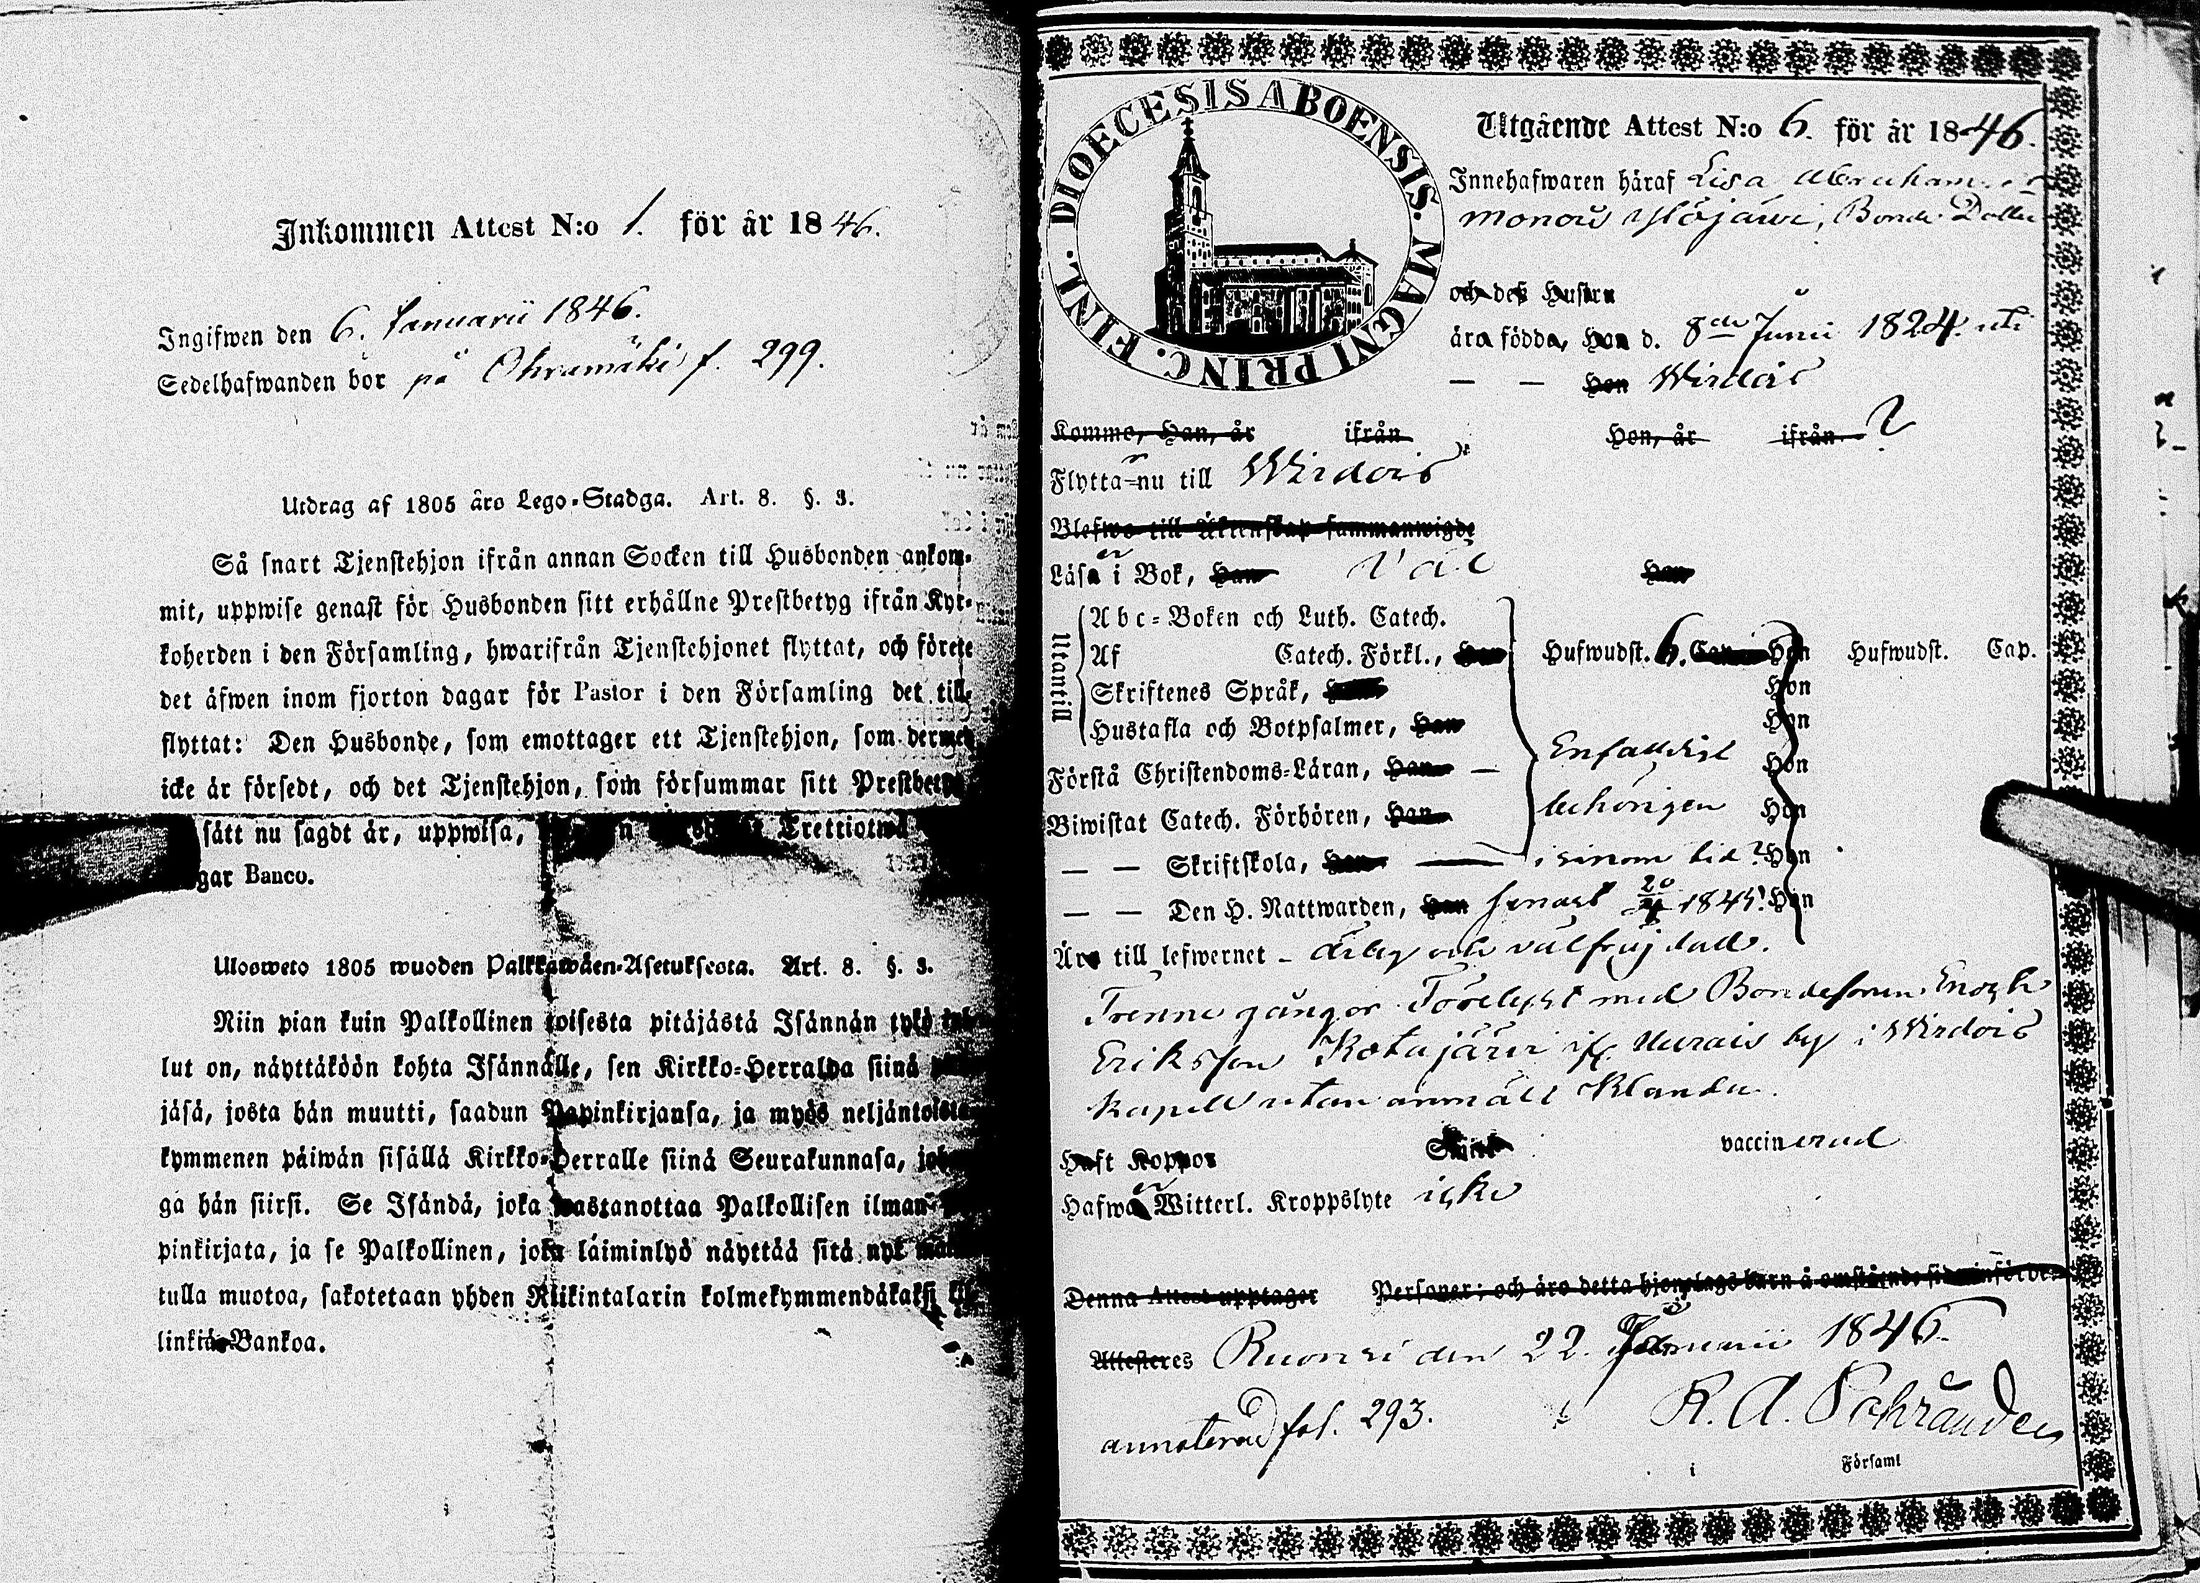 Inkommen Attest N:o 1. för år 1846.
Ingifwen den 6. Januarii 1846.
Sedelhafwanden bor på Ohramäki f. 299.
Utdrag af 1805 års Lego-Stadga. Art. 8. §. 3.
Så snart Tjenstehjon ifrån annan Socken till Husbonden ankom-
mit, uppwise genast för Husbonden sitt erhållne Prestbetyg ifrån Kyr-
koherden i den Församling, hwarifrån Tjenstehjonet flyttat, och förete
det äfwen inom fjorton dagar för Pastor i den Församling det till-
flyttat: Den Husbonde, som emottager ett Tjenstehjon, som dermed
icke är försedt, och det Tjenstehjon, som försummar sitt Prestbetyg
sätt nu sagdt är, uppwisa, Trettiotwå
gar Banco.
Ulosweto 1805 wuoden Palkkawäen-Asetuksesta. Art. 8. §. 3.
Niin pian kuin Palkollinen toisesta pitäjästä Isännän tykö
lut on, näyttäköön kohta Isännälle, sen Kirkko-Herralda siinä
jäsä, josta hän muutti, saadun Papinkirjansa, ja myös neljäntoista
kymmenen päiwän sisällä Kirkko-Herralle siinä Seurakunnasa,
ga hän siirsi. Se Isändä, joka wastanottaa Palkollisen ilman
pinkirjata, ja se Palkollinen, joka läiminlyö näyttää sitä nyt
tulla muotoa, sakotetaan yhden Riikintalarin kolmekymmendäkaksi
linkiä Bankoa.
DIOECESIS ABOENSIS. MAGNI PRINC. FINL.
Utgående Attest N:o 6. för år 1846.
Innehafwaren häraf Lisa
Ylöjärvi, Bonde Dotter
och deß Hustru
äro födda, Han d. 8de Junii 1824. uti
— — Hon Wirdois
Komme, Han, år ifrån Hon, år ifrån
Flyttar nu till Wirdois
Blefwo till Äktenskap sammanwigde
Läser i Bok, Han Väl Hon
Utantill
Abc-Boken och Luth. Catech.
Af Catech. Förkl., Han Hufwudst. 6. Cap. Hon Hufwudst. Cap.
Skriftenes Språk, Han Hon
Hustafla och Botpsalmer, Han Hon
Förstå Christendoms-Läran, Han — Enfalldigt Hon
Biwistat Catech. Förhören, Han behörigen Hon
— — Skriftskola, Han — i sinom tid Hon
— — Den H. Nattwarden, Han senast 1845. Hon
Äro till lefwernet - ärlig och välfrejdad.
Trenne gångor Förelyst med Bondesonen Enoch
Eriksson Kotajärvi ifr. Murais by i Wirdois
Kapell utan anmält Klander.
Haft Koppor vaccinerad
Hafwer Witterl. Kroppslyte icke
Denna Attest upptager Personer; och äro detta hjonelags barn å omstående sida införde.
Attesteres Ruovesi den 22. Januarii 1846.
annoterad fol. 293.
R. A.
i Församl